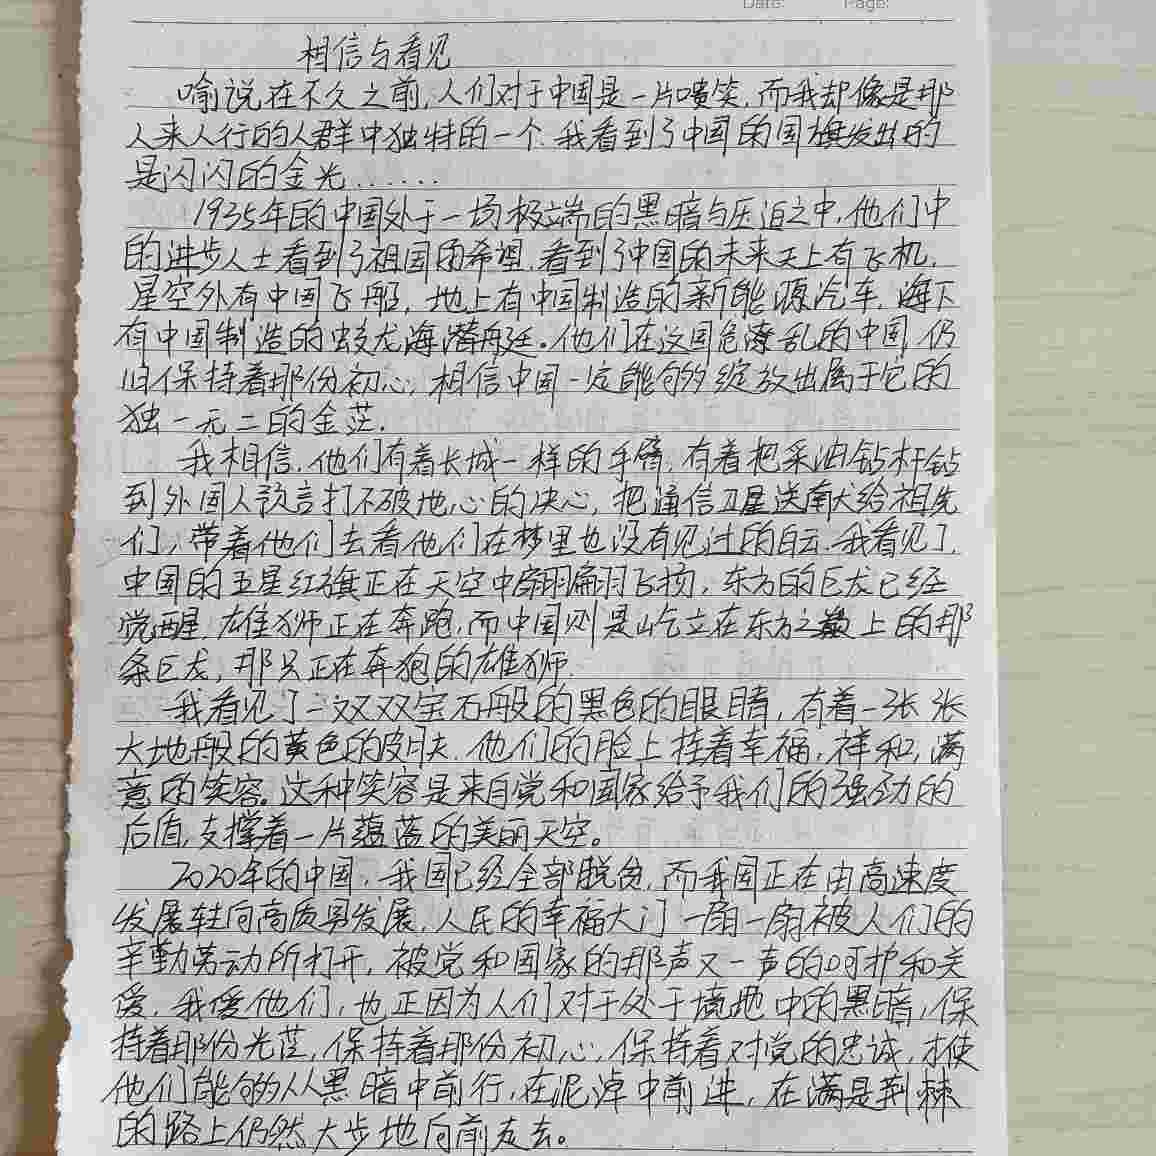 Date: Page:
相信与看见
喻说在不久之前,人们对于中国是一片嘆笑,而我却像是那
人来人行的人群中独特的一个.我看到了中国的国旗发出的
是闪闪的金光......
1935年的中国处于一场极端的黑暗与压迫之中,他们中
的进步人士看到了祖国的希望.看到了中国的未来天上有飞机,
星空外有中国飞船,地上有中国制造的新能源汽车.海下
有中国制造的蛟龙海潜舟廷。他们在这国危潦乱的中国仍
旧保持着那份初心,相信中国一定能够绽放出属于它的
独一无二的金茫.
我相信.他们有着长城一样的手臂.有着把采油钻杆钻
到外国人预言打不破地心的决心,把通信卫星送献给祖先
们,带着他们去看他们在梦里也没有见过的白云.我看见了,
中国的五星红旗正在天空中翩翩飞扬,东方的巨龙已经
觉醒.雄狮正在奔跑,而中国则是屹立在东方之巅上的那
条巨龙,那只正在奔狍的雄狮.
我看见了一双双宝石般的黑色的眼睛,有着一张张
大地般的黄色的皮肤.他们的脸上挂着幸福,祥和,满
意的笑容。这种笑容是来自党和国家给予我们的强劲的
后值,支撑着一片蕴蓝的美丽天空。
2020年的中国,我国已经全部脱贫,而我国正在由高速度
发展转向高质男发展.人民的幸福大门一扇一扇被人们的
辛勤劳动所打开,被党和国家的那声又一声的呵护和关
爱.我爱他们,也正因为人们对于处于境地中的黑暗,保
持着那份光茫,保持着那份初心,保持着对党的忠诚,才使
他们能够从黑暗中前行,在泥淖中前进,在满是荆棘
的路上仍然大步地向前走去。